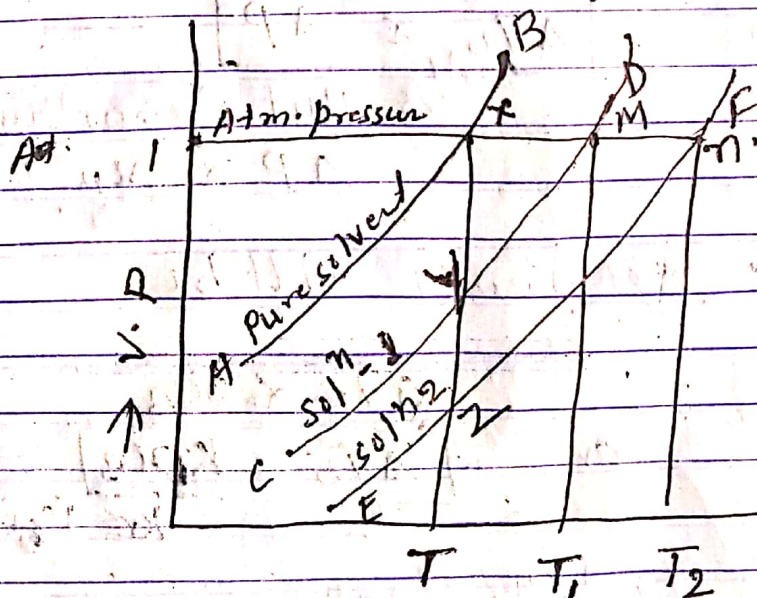 B
D
F
Atm. pressur
x
M
n
At. 1
Pure solvent
V.P
Y
A
soln-1
soln 2
Z
C
E
T
T1
T2